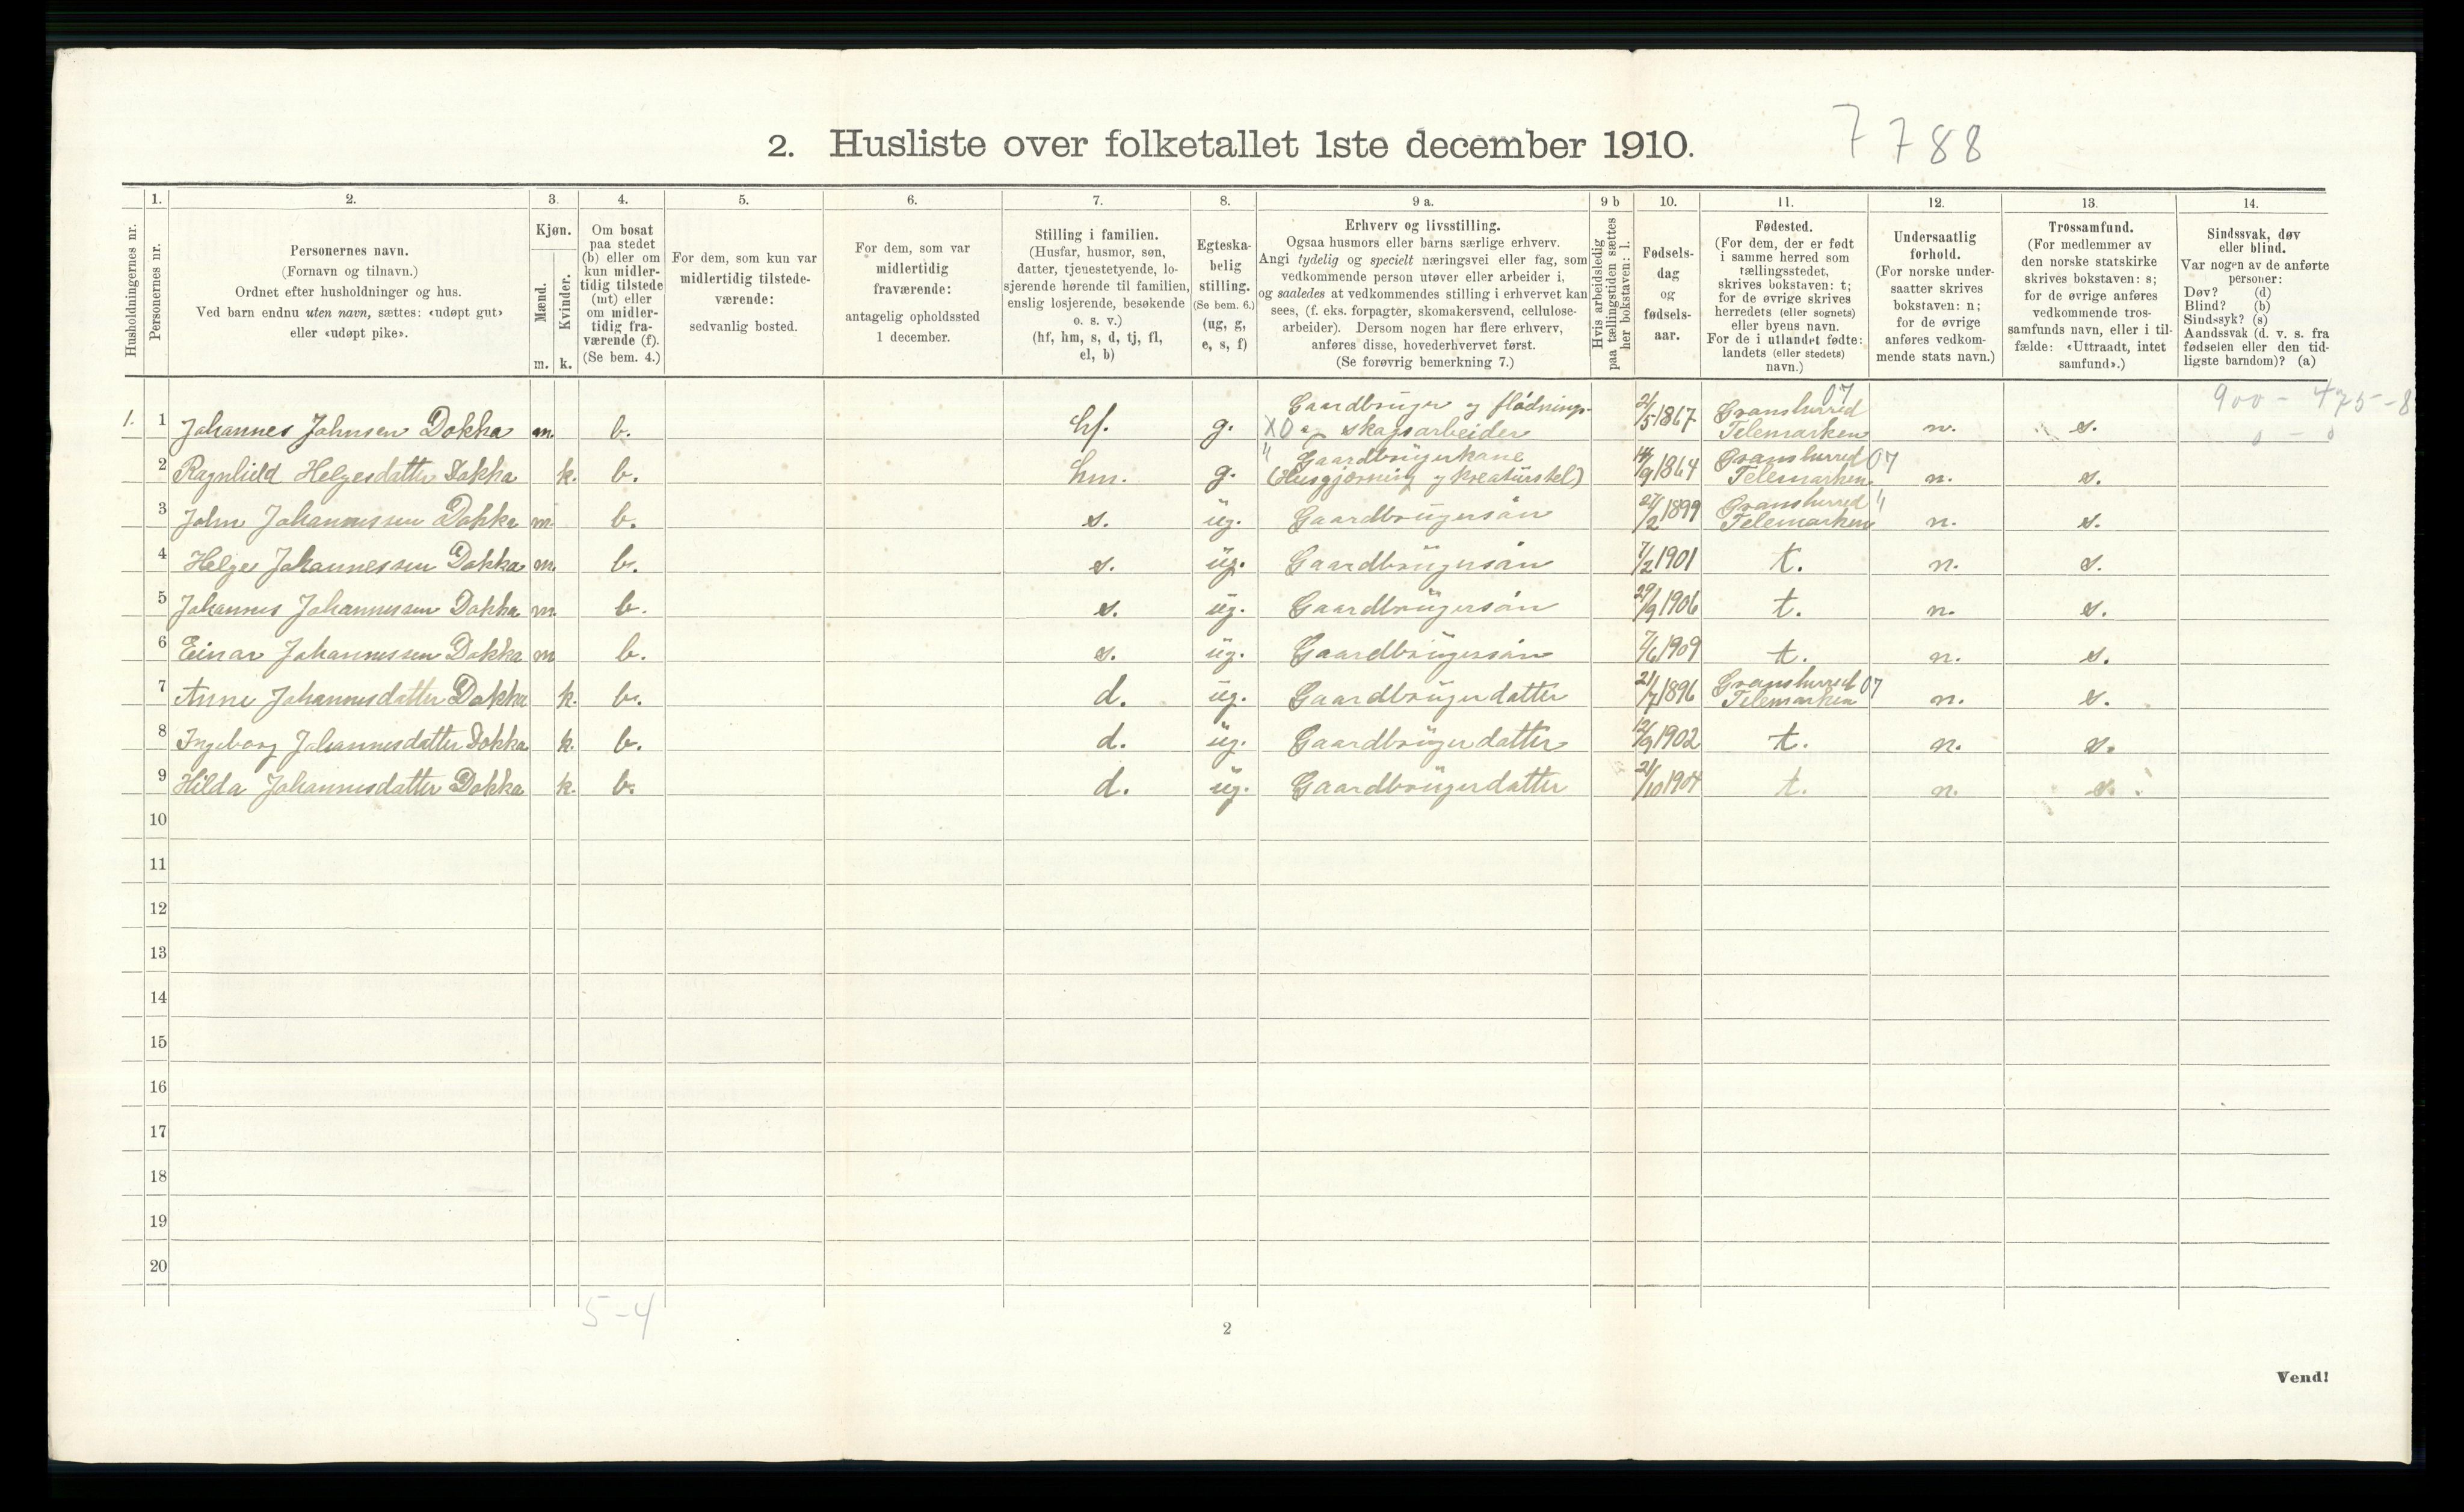 7 7 8 8
2. Husliste over folketallet 1ste december 1910.
Husholdningernes nr.
1.
Personernes nr.
2.
Personernes navn.
(Fornavn og tilnavn.)
Ordnet efter husholdninger og hus.
Ved barn endnu uten navn, sættes: «udøpt gut»
eller «udøpt pike».
3.
Kjøn.
Mænd.
Kvinder.
m. k.
4.
Om bosat
paa stedet
(b) eller om
kun midler-
tidig tilstede
(mt) eller
om midler-
tidig fra-
værende (f).
(Se bem. 4.)
5.
For dem, som kun var
midlertidig tilstede-
værende:
sedvanlig bosted.
6.
For dem, som var
midlertidig
fraværende:
antagelig opholdssted
1 december.
7.
Stilling i familien.
(Husfar, husmor, søn,
datter, tjenestetyende, lo-
sjerende hørende til familien,
enslig losjerende, besøkende
o. s. v.)
(hf, hm, s, d, tj, fl,
el, b)
8.
Egteska-
belig
stilling.
(Se bem. 6.)
(ug, g,
e, s, f)
9 a.
Erhverv og livsstilling.
Ogsaa husmors eller barns særlige erhverv.
Angi tydelig og specielt næringsvei eller fag, som
vedkommende person utøver eller arbeider i,
og saaledes at vedkommendes stilling i erhvervet kan
sees, (f. eks. forpagter, skomakersvend, cellulose-
arbeider). Dersom nogen har flere erhverv,
anføres disse, hovederhvervet først.
(Se forøvrig bemerkning 7.)
9 b
Hvis arbeidsledig
paa tællingstiden sættes
her bokstaven: l.
10.
Fødsels-
dag
og
fødsels-
aar.
11.
Fødested.
(For dem, der er født
i samme herred som
tællingsstedet,
skrives bokstaven: t;
for de øvrige skrives
herredets (eller sognets)
eller byens navn.
For de i utlandet fødte:
landets (eller stedets)
navn.)
12.
Undersaatlig
forhold.
(For norske under-
saatter skrives
bokstaven: n;
for de øvrige
anføres vedkom-
mende stats navn.)
13.
Trossamfund.
(For medlemmer av
den norske statskirke
skrives bokstaven: s;
for de øvrige anføres
vedkommende tros-
samfunds navn, eller i til-
fælde: «Uttraadt, intet
samfund».)
14.
Sindssvak, døv
eller blind.
Var nogen av de anførte
personer:
Døv? (d)
Blind? (b)
Sindssyk? (s)
Aandssvak (d. v. s. fra
fødselen eller den tid-
ligste barndom)? (a)
07 900 - 475 - 8
Gaardbruger og flødnings- Gransherred
1. 1 Johannes Johnsen Dokka m. b. hf. g. XO og skogsarbeider 21/5 1867 Telemarken n. s. 0 - 0
" Gaardbrugerkone Gransherred 07
2 Ragnhild Helgesdatter Dokka k. b. hm. g. (Husgjerning og kreaturstel) 14/9 1864 Telemarken n. s.
Gransherred "
3 John Johannessen Dokka m b. s. ug. Gaardbrugersøn 27/2 1899 Telemarken n. s.
4 Helge Johannessen Dokka m. b. s. ug. Gaardbrugersøn 7/2 1901 t. n. s.
5 Johannes Johannessen Dokka m. b. s. ug. Gaardbrugersøn 29/9 1906 t. n. s.
6 Einar Johannessen Dokka m b. s. ug. Gaardbrugersøn 7/6 1909 t. n. s.
Gransherred 07
7 Anne Johannesdatter Dokka k. b. d. ug. Gaardbrugerdatter 21/7 1896 Telemarken n. s.
8 Ingeborg Johannesdatter Dokka k. b. d. ug. Gaardbrugerdatter 12/9 1902 t. n. s.
9 Hilda Johannesdatter Dokka k. b. d. ug. Gaardbrugerdatter 21/10 1904 t. n. s.
10
11
12
13
14
15
16
17
18
19
20
5-4
2
Vend!